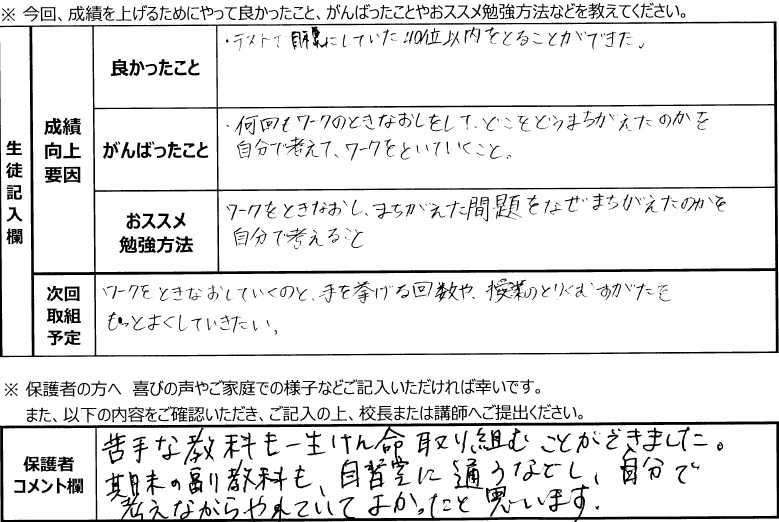 ※ 今回、成績を上げるためにやって良かったこと、がんばったことやおススメ勉強方法などを教えてください。
生徒記入欄
成績向上要因
良かったこと
・テストで目標にしていた40位以内をとることができた。
がんばったこと
・何回もワークのときなおしをして、どこをどうまちがえたのかを
自分で考えて、ワークをといていくこと。
おススメ
勉強方法
ワークをときなおし、まちがえた問題をなぜまちがえたのかを
自分で考えること
次回
取組
予定
ワークをときなおしていくのと、手を挙げる回数や、授業のとりくむすがたを
もっとよくしていきたい。
※ 保護者の方へ 喜びの声やご家庭での様子などご記入いただければ幸いです。
また、以下の内容をご確認いただき、ご記入の上、校長または講師へご提出ください。
保護者
コメント欄
苦手な教科も一生けん命取り組むことができました。
期末の副教科も、自習室に通うなどし、自分で
考えながらやれていてよかったと思います.